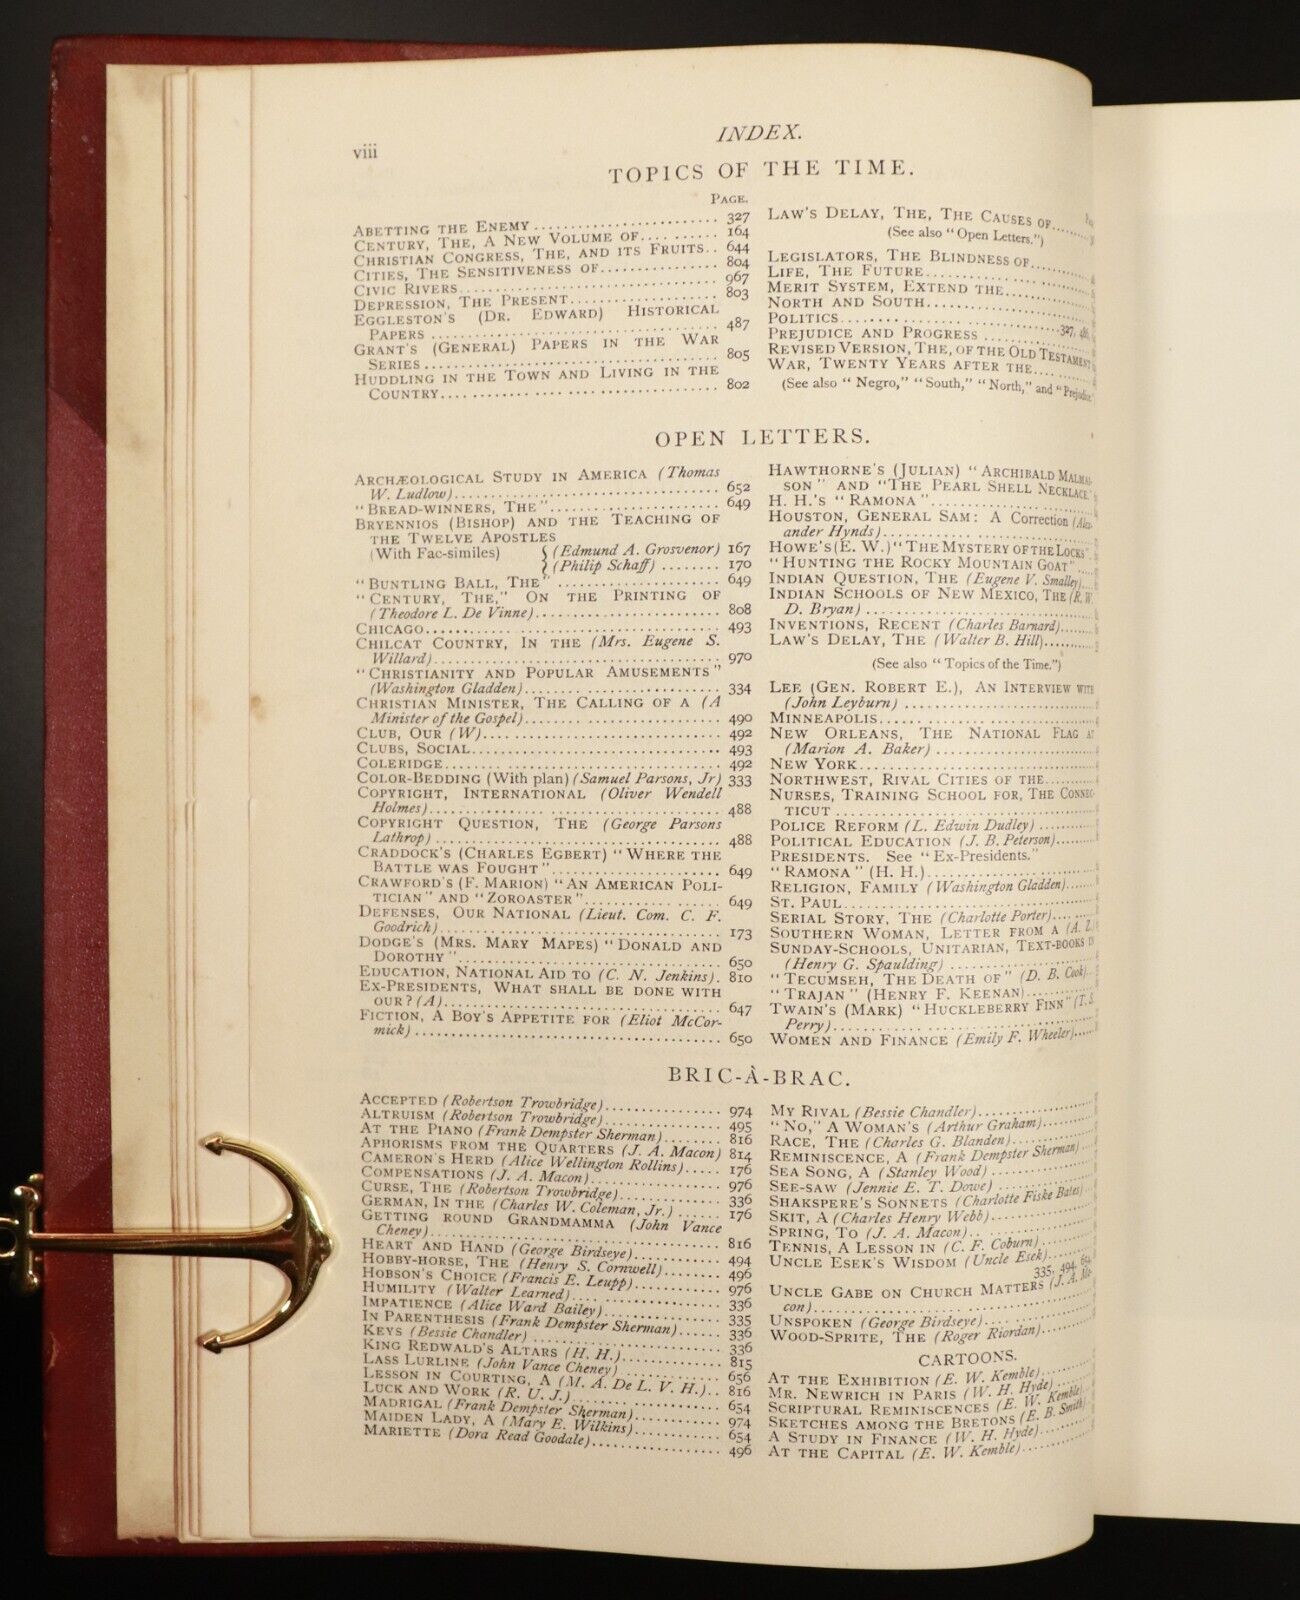 viii
INDEX.
TOPICS OF THE TIME.
PAGE.
ABETTING THE ENEMY 327
CENTURY, THE, A NEW VOLUME OF 164
CHRISTIAN CONGRESS, THE, AND ITS FRUITS 644
CITIES, THE SENSITIVENESS OF 804
CIVIC RIVERS 967
DEPRESSION, THE PRESENT 803
EGGLESTON'S (DR. EDWARD) HISTORICAL
PAPERS 487
GRANT'S (GENERAL) PAPERS IN THE WAR
SERIES 805
HUDDLING IN THE TOWN AND LIVING IN THE
COUNTRY 802
LAW'S DELAY, THE, THE CAUSES OF
(See also "Open Letters.")
LEGISLATORS, THE BLINDNESS OF
LIFE, THE FUTURE
MERIT SYSTEM, EXTEND THE
NORTH AND SOUTH
POLITICS 327,
PREJUDICE AND PROGRESS
REVISED VERSION, THE, OF THE OLD TESTAMENT
WAR, TWENTY YEARS AFTER THE
(See also "Negro," "South," "North," and "Prejudice.")
OPEN LETTERS.
ARCHÆOLOGICAL STUDY IN AMERICA (Thomas
W. Ludlow) 652
"BREAD-WINNERS, THE" 649
BRYENNIOS (BISHOP) AND THE TEACHING OF
THE TWELVE APOSTLES
(With Fac-similes) { (Edmund A. Grosvenor) 167
(Philip Schaff) 170
"BUNTLING BALL, THE" 649
"CENTURY, THE," ON THE PRINTING OF
(Theodore L. De Vinne) 808
CHICAGO 493
CHILCAT COUNTRY, IN THE (Mrs. Eugene S.
Willard) 970
"CHRISTIANITY AND POPULAR AMUSEMENTS"
(Washington Gladden) 334
CHRISTIAN MINISTER, THE CALLING OF A (A
Minister of the Gospel) 490
CLUB, OUR (W) 492
CLUBS, SOCIAL 493
COLERIDGE 492
COLOR-BEDDING (With plan) (Samuel Parsons, Jr) 333
COPYRIGHT, INTERNATIONAL (Oliver Wendell
Holmes) 488
COPYRIGHT QUESTION, THE (George Parsons
Lathrop) 488
CRADDOCK'S (CHARLES EGBERT) "WHERE THE
BATTLE WAS FOUGHT" 649
CRAWFORD'S (F. MARION) "AN AMERICAN POLI-
TICIAN" AND "ZOROASTER" 649
DEFENSES, OUR NATIONAL (Lieut. Com. C. F.
Goodrich) 173
DODGE'S (MRS. MARY MAPES) "DONALD AND
DOROTHY" 650
EDUCATION, NATIONAL AID TO (C. N. Jenkins) 810
EX-PRESIDENTS, WHAT SHALL BE DONE WITH
OUR? (A) 647
FICTION, A BOY'S APPETITE FOR (Eliot McCor-
mick) 650
HAWTHORNE'S (JULIAN) "ARCHIBALD MALMAI-
SON" AND "THE PEARL SHELL NECKLACE"
H. H.'S "RAMONA"
HOUSTON, GENERAL SAM: A Correction (Alex-
ander Hynds)
HOWE'S (E. W.) "THE MYSTERY OF THE LOCKS"
"HUNTING THE ROCKY MOUNTAIN GOAT"
INDIAN QUESTION, THE (Eugene V. Smalley)
INDIAN SCHOOLS OF NEW MEXICO, THE (R. W.
D. Bryan)
INVENTIONS, RECENT (Charles Barnard)
LAW'S DELAY, THE (Walter B. Hill)
(See also "Topics of the Time.")
LEE (GEN. ROBERT E.), AN INTERVIEW WITH
(John Leyburn)
MINNEAPOLIS
NEW ORLEANS, THE NATIONAL FLAG AT
(Marion A. Baker)
NEW YORK
NORTHWEST, RIVAL CITIES OF THE
NURSES, TRAINING SCHOOL FOR, THE CONNEC-
TICUT
POLICE REFORM (L. Edwin Dudley)
POLITICAL EDUCATION (J. B. Peterson)
PRESIDENTS. See "Ex-Presidents."
"RAMONA" (H. H.)
RELIGION, FAMILY (Washington Gladden)
ST. PAUL
SERIAL STORY, THE (Charlotte Porter)
SOUTHERN WOMAN, LETTER FROM A (A. Z.)
SUNDAY-SCHOOLS, UNITARIAN, TEXT-BOOKS IN
(Henry G. Spaulding)
"TECUMSEH, THE DEATH OF" (D. B. Cook)
"TRAJAN" (HENRY F. KEENAN)
TWAIN'S (MARK) "HUCKLEBERRY FINN" (T. S.
Perry)
WOMEN AND FINANCE (Emily F. Wheeler)
BRIC-À-BRAC.
ACCEPTED (Robertson Trowbridge) 974
ALTRUISM (Robertson Trowbridge) 495
AT THE PIANO (Frank Dempster Sherman) 816
APHORISMS FROM THE QUARTERS (J. A. Macon) 814
CAMERON'S HERD (Alice Wellington Rollins) 176
COMPENSATIONS (J. A. Macon) 976
CURSE, THE (Robertson Trowbridge) 336
GERMAN, IN THE (Charles W. Coleman, Jr.) 176
GETTING ROUND GRANDMAMMA (John Vance
Cheney) 816
HEART AND HAND (George Birdseye) 494
HOBBY-HORSE, THE (Henry S. Cornwell) 496
HOBSON'S CHOICE (Francis E. Leupp) 976
HUMILITY (Walter Learned) 336
IMPATIENCE (Alice Ward Bailey) 335
IN PARENTHESIS (Frank Dempster Sherman) 336
KEYS (Bessie Chandler) 336
KING REDWALD'S ALTARS (H. H.) 815
LASS LURLINE (John Vance Cheney) 656
LESSON IN COURTING, A (M. A. De L. V. H.) 816
LUCK AND WORK (R. U. J.) 654
MADRIGAL (Frank Dempster Sherman) 974
MAIDEN LADY, A (Mary E. Wilkins) 654
MARIETTE (Dora Read Goodale) 496
MY RIVAL (Bessie Chandler)
"NO," A WOMAN'S (Arthur Graham)
RACE, THE (Charles G. Blanden)
REMINISCENCE, A (Frank Dempster Sherman)
SEA SONG, A (Stanley Wood)
SEE-SAW (Jennie E. T. Dowe)
SHAKSPERE'S SONNETS (Charlotte Fiske Bates)
SKIT, A (Charles Henry Webb)
SPRING, TO (J. A. Macon)
TENNIS, A LESSON IN (C. F. Coburn)
UNCLE ESEK'S WISDOM (Uncle Esek)
335, 494, 654,
UNCLE GABE ON CHURCH MATTERS (J. A. Ma-
con)
UNSPOKEN (George Birdseye)
WOOD-SPRITE, THE (Roger Riordan)
CARTOONS.
AT THE EXHIBITION (E. W. Kemble)
MR. NEWRICH IN PARIS (W. H. Hyde)
SCRIPTURAL REMINISCENCES (E. W. Kemble)
SKETCHES AMONG THE BRETONS (E. B. Smith)
A STUDY IN FINANCE (W. H. Hyde)
AT THE CAPITAL (E. W. Kemble)